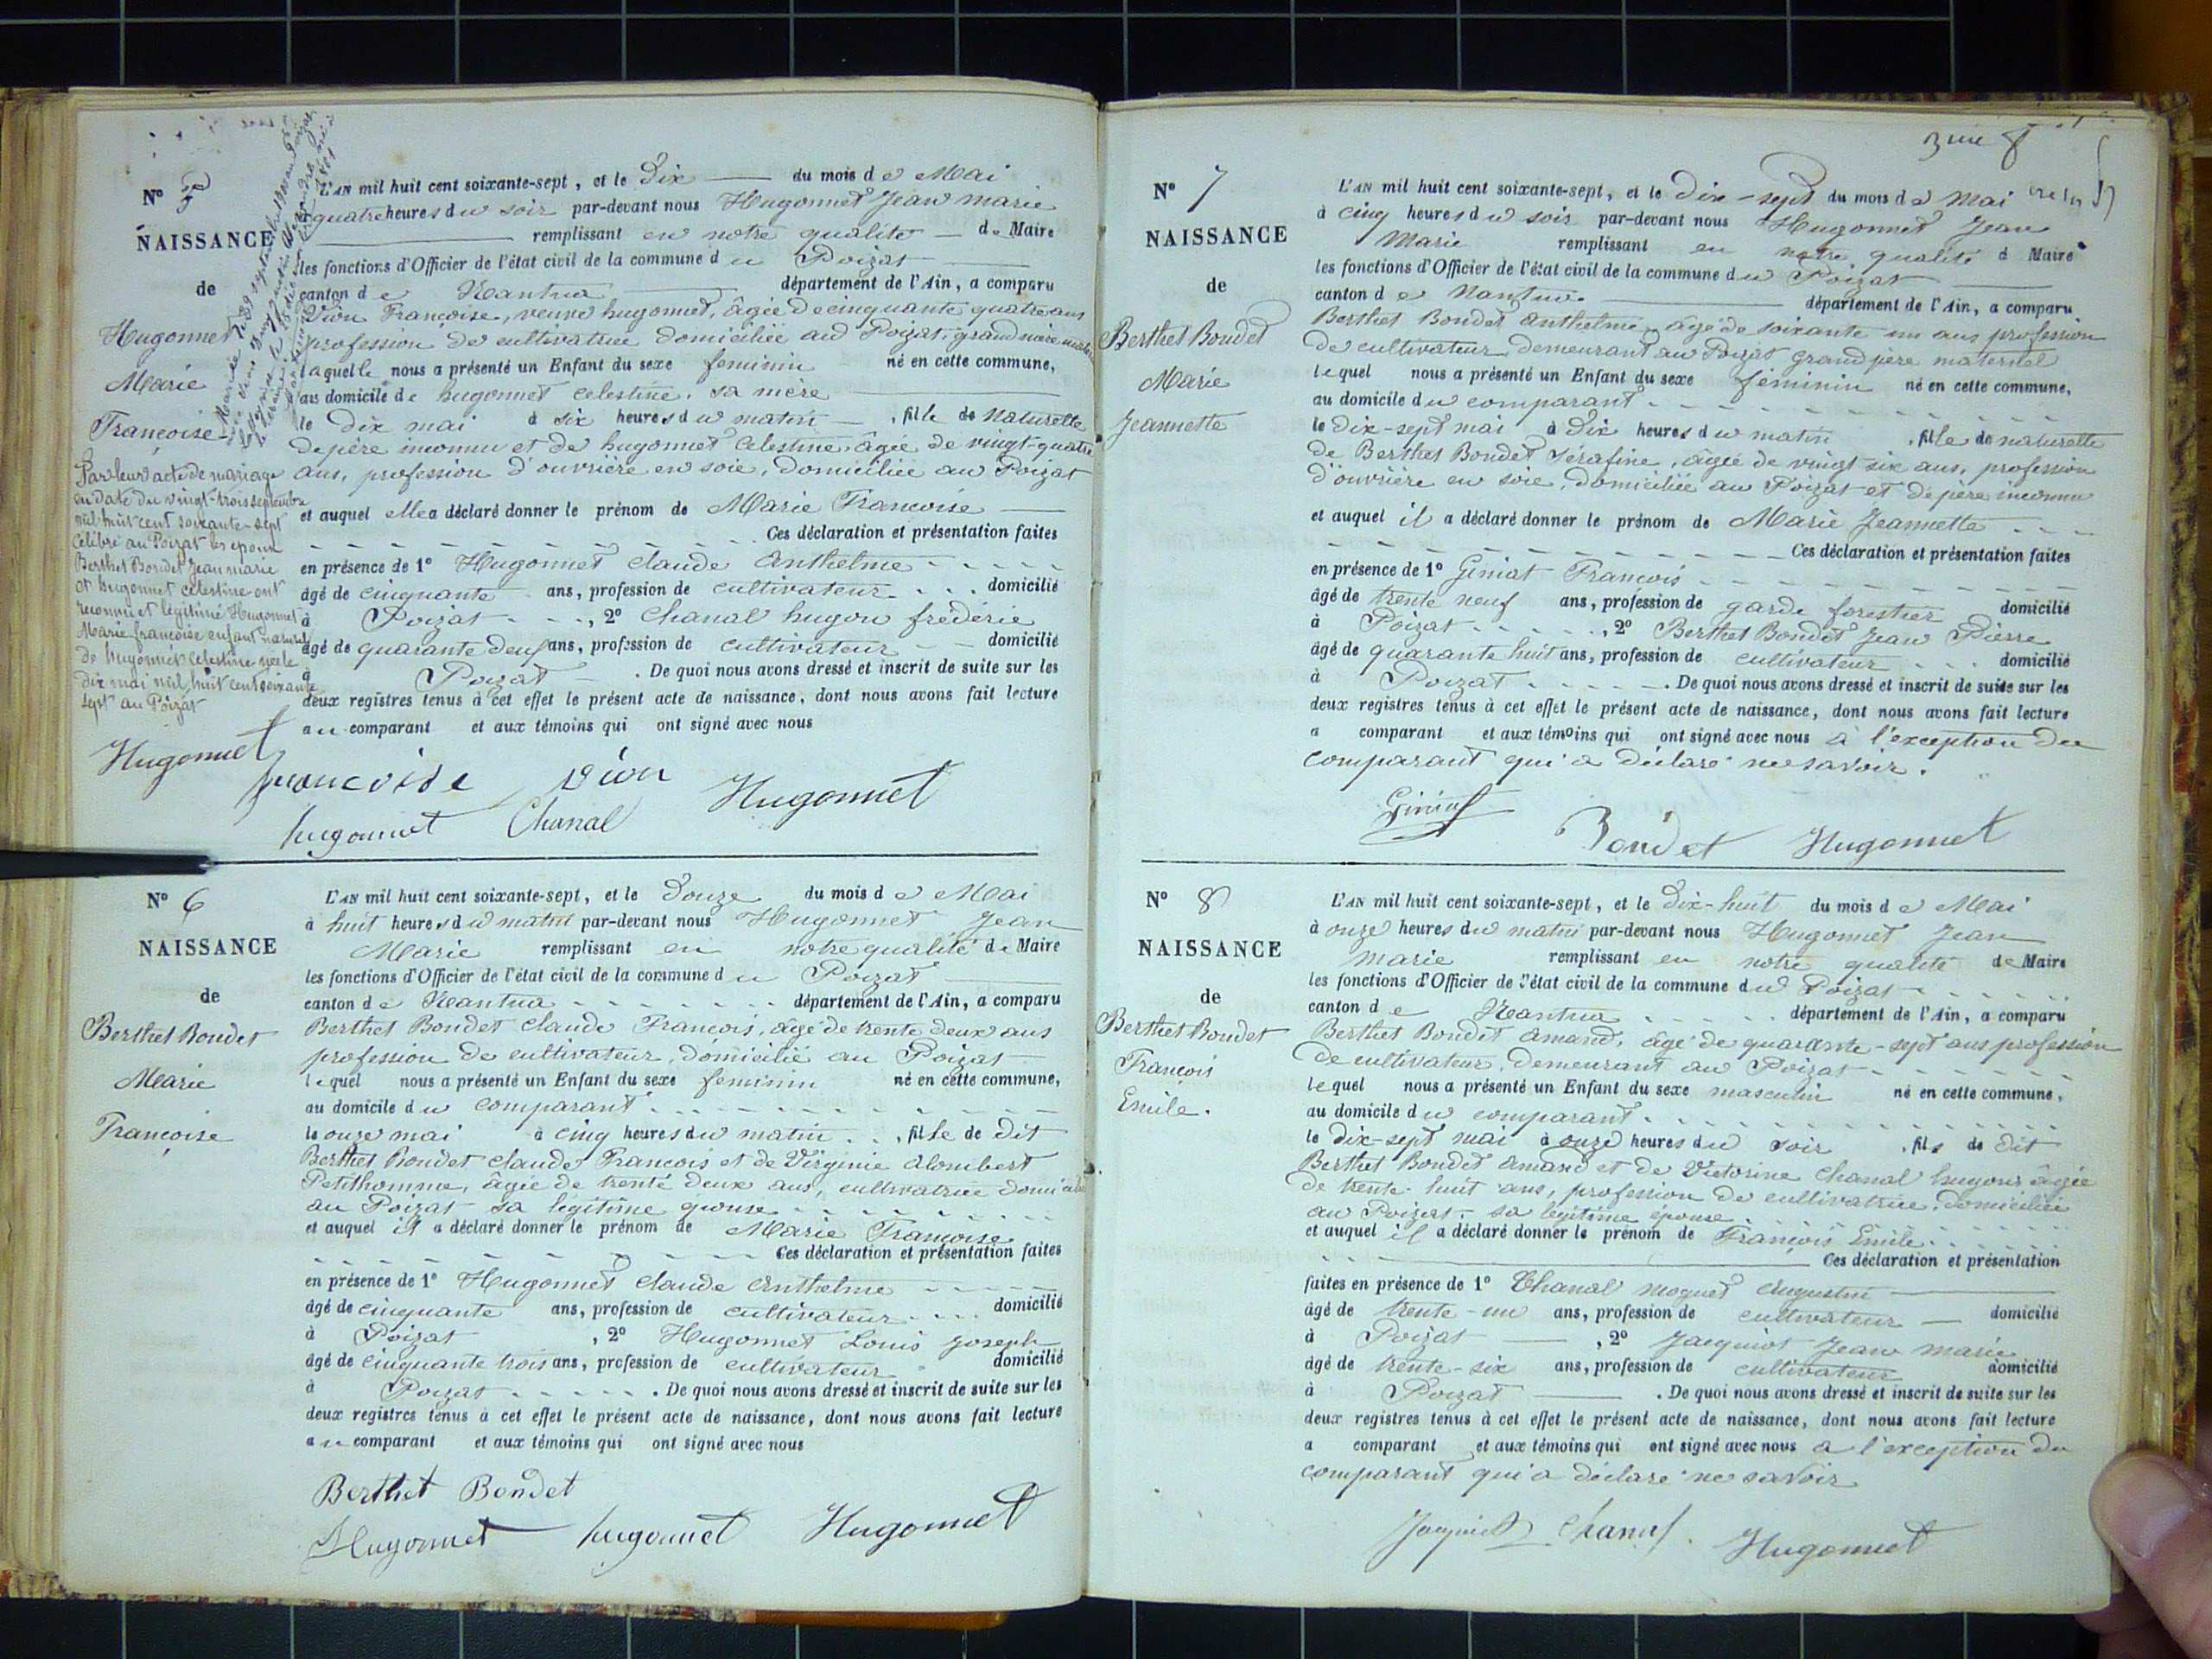 N° 5
NAISSANCE
de
Hugonnet
Marie
Françoise
L'AN mil huit cent soixante-sept, et le Dix du mois de Mai
à quatre heures du soir par-devant nous Hugonnet Jean marie
remplissant en notre qualité de Maire
les fonctions d'Officier de l'état civil de la commune du Poizat
canton de Nantua département de l'Ain, a comparu
Vion Françoise, veuve hugonnet, âgée de cinquante quatre ans
profession de cultivatrice domiciliée au Poizat, grand mère
laquelle nous a présenté un Enfant du sexe feminin né en cette commune,
au domicile de hugonnet celestine, sa mère
le dix mai à six heures du matin, fille de naturelle
de père inconnu et de hugonnet Celestine, âgée de vingt-quatre
ans, profession d'ouvrière en soie, domiciliée au Poizat
et auquel elle a déclaré donner le prénom de Marie Françoise
Ces déclaration et présentation faites
en présence de 1° Hugonnet claude Anthelme
âgé de cinquante ans, profession de cultivateur domicilié
à Poizat, 2° Chanal hugon frédéric
âgé de quarante deux ans, profession de cultivateur domicilié
à Poizat. De quoi nous avons dressé et inscrit de suite sur les
deux registres tenus à cet effet le présent acte de naissance, dont nous avons fait lecture
au comparant et aux témoins qui ont signé avec nous
Par leur acte de mariage
en date du vingt-trois septembre
mil huit cent soixante-sept
célébré au Poizat les époux
Berthet Bondet Jean marie
et hugonnet célestine ont
reconnu et légitimé Hugonnet
Marie françoise enfant naturel
de hugonnet celestine née le
dix mai mil huit cent soixante
sept au Poizat
Hugonnet
francoise vion Hugonnet
hugonnet Chanal
N° 6
NAISSANCE
de
Berthet Bondet
Marie
Françoise
L'AN mil huit cent soixante-sept, et le Douze du mois de Mai
à huit heures du matin par-devant nous Hugonnet Jean
Marie remplissant en notre qualité de Maire
les fonctions d'Officier de l'état civil de la commune du Poizat
canton de Nantua département de l'Ain, a comparu
Berthet Bondet claude François, âgé de trente deux ans
profession de cultivateur, domicilié au Poizat
lequel nous a présenté un Enfant du sexe feminin né en cette commune,
au domicile du comparant
le onze mai à cinq heures du matin, fille de dit
Berthet Bondet claude François et de Virginie Alombert
Petithomme, âgée de trente deux ans, cultivatrice
au Poizat sa légitime épouse
et auquel il a déclaré donner le prénom de Marie Françoise
Ces déclaration et présentation faites
en présence de 1° Hugonnet claude Anthelme
âgé de cinquante ans, profession de cultivateur domicilié
à Poizat, 2° Hugonnet Louis Joseph
âgé de cinquante trois ans, profession de cultivateur domicilié
à Poizat. De quoi nous avons dressé et inscrit de suite sur les
deux registres tenus à cet effet le présent acte de naissance, dont nous avons fait lecture
au comparant et aux témoins qui ont signé avec nous
Berthet Bondet
Hugonnet hugonnet Hugonnet
N° 7
NAISSANCE
de
Berthet Bondet
Marie
Jeannette
L'AN mil huit cent soixante-sept, et le Dix-sept du mois de Mai
à cinq heures du soir par-devant nous Hugonnet Jean
Marie remplissant en notre qualité d Maire
les fonctions d'Officier de l'état civil de la commune du Poizat
canton de Nantua département de l'Ain, a comparu
Berthet Bondet Anthelme, âgé de soixante un ans profession
de cultivateur demeurant au Poizat grand père maternel
lequel nous a présenté un Enfant du sexe féminin né en cette commune,
au domicile du comparant
le dix-sept mai à dix heures du matin, fille de naturelle
de Berthet Bondet Sérafine, âgée de vingt six ans, profession
d'ouvrière en soie, domiciliée au Poizat et de père inconnu
et auquel il a déclaré donner le prénom de Marie Jeannette
Ces déclaration et présentation faites
en présence de 1° Géniat François
âgé de trente neuf ans, profession de garde forestier domicilié
à Poizat, 2° Berthet Bondet Jean Pierre
âgé de quarante huit ans, profession de cultivateur domicilié
à Poizat. De quoi nous avons dressé et inscrit de suite sur les
deux registres tenus à cet effet le présent acte de naissance, dont nous avons fait lecture
a comparant et aux témoins qui ont signé avec nous à l'exception du
comparant qui a déclaré ne savoir.
Géniat
Bondet Hugonnet
N° 8
NAISSANCE
de
Berthet Bondet
François
Emile.
L'AN mil huit cent soixante-sept, et le Dix-huit du mois de Mai
à onze heures du matin par-devant nous Hugonnet Jean
marie remplissant en notre qualité de Maire
les fonctions d'Officier de l'état civil de la commune du Poizat
canton de Nantua département de l'Ain, a comparu
Berthet Bondet Amand, âgé de quarante-sept ans profession
de cultivateur, demeurant au Poizat
lequel nous a présenté un Enfant du sexe masculin né en cette commune,
au domicile du comparant
le dix-sept mai à onze heures du soir, fils de dit
Berthet Bondet Amand et de Victorine Chanal hugon âgée
de trente-huit ans, profession de cultivatrice, domiciliée
au Poizat, sa legitime épouse
et auquel il a déclaré donner le prénom de François Emile
Ces déclaration et présentation
faites en présence de 1° Chanal moguet Augustin
âgé de trente-un ans, profession de cultivateur domicilié
à Poizat, 2° Jacquiot Jean marie
âgé de trente-six ans, profession de cultivateur domicilié
à Poizat. De quoi nous avons dressé et inscrit de suite sur les
deux registres tenus à cet effet le présent acte de naissance, dont nous avons fait lecture
a comparant et aux témoins qui ont signé avec nous a l'exception du
comparant qui a déclaré ne savoir
Jaquiot Chanal Hugonnet